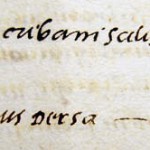 cubani sali
us persa —